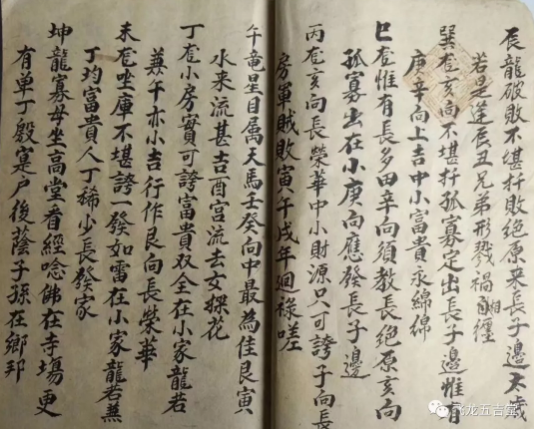 辰龍破敗不堪扦敗絕原來長子邊太歲
若是逢辰丑兄弟形戮禍纏
巽龍亥向不堪扦孤寡定出長子邊惟有
庚辛向上吉中小富貴永綿綿
巳龍惟有長多田辛向須教長絕原亥向
孤寡出在小庚向應發長子邊
丙龍亥向長榮華中小財源只可誇子向長
房軍賊敗寅午戌年廻祿嗟
午竜星目属天馬壬癸向中最為佳艮寅
水来流甚吉酉宫流去女探花
丁龍小房實可誇富貴双全在小家龍若
兼午亦小吉行作艮向長榮華
未龍坐庫不堪誇一發如雷在小家龍若兼
丁均富貴人丁稀少長發家
坤龍寡母坐高堂看經唸佛在寺塲更
有单丁殷寔户後蔭子孫在鄉邦
飛龙五吉堂